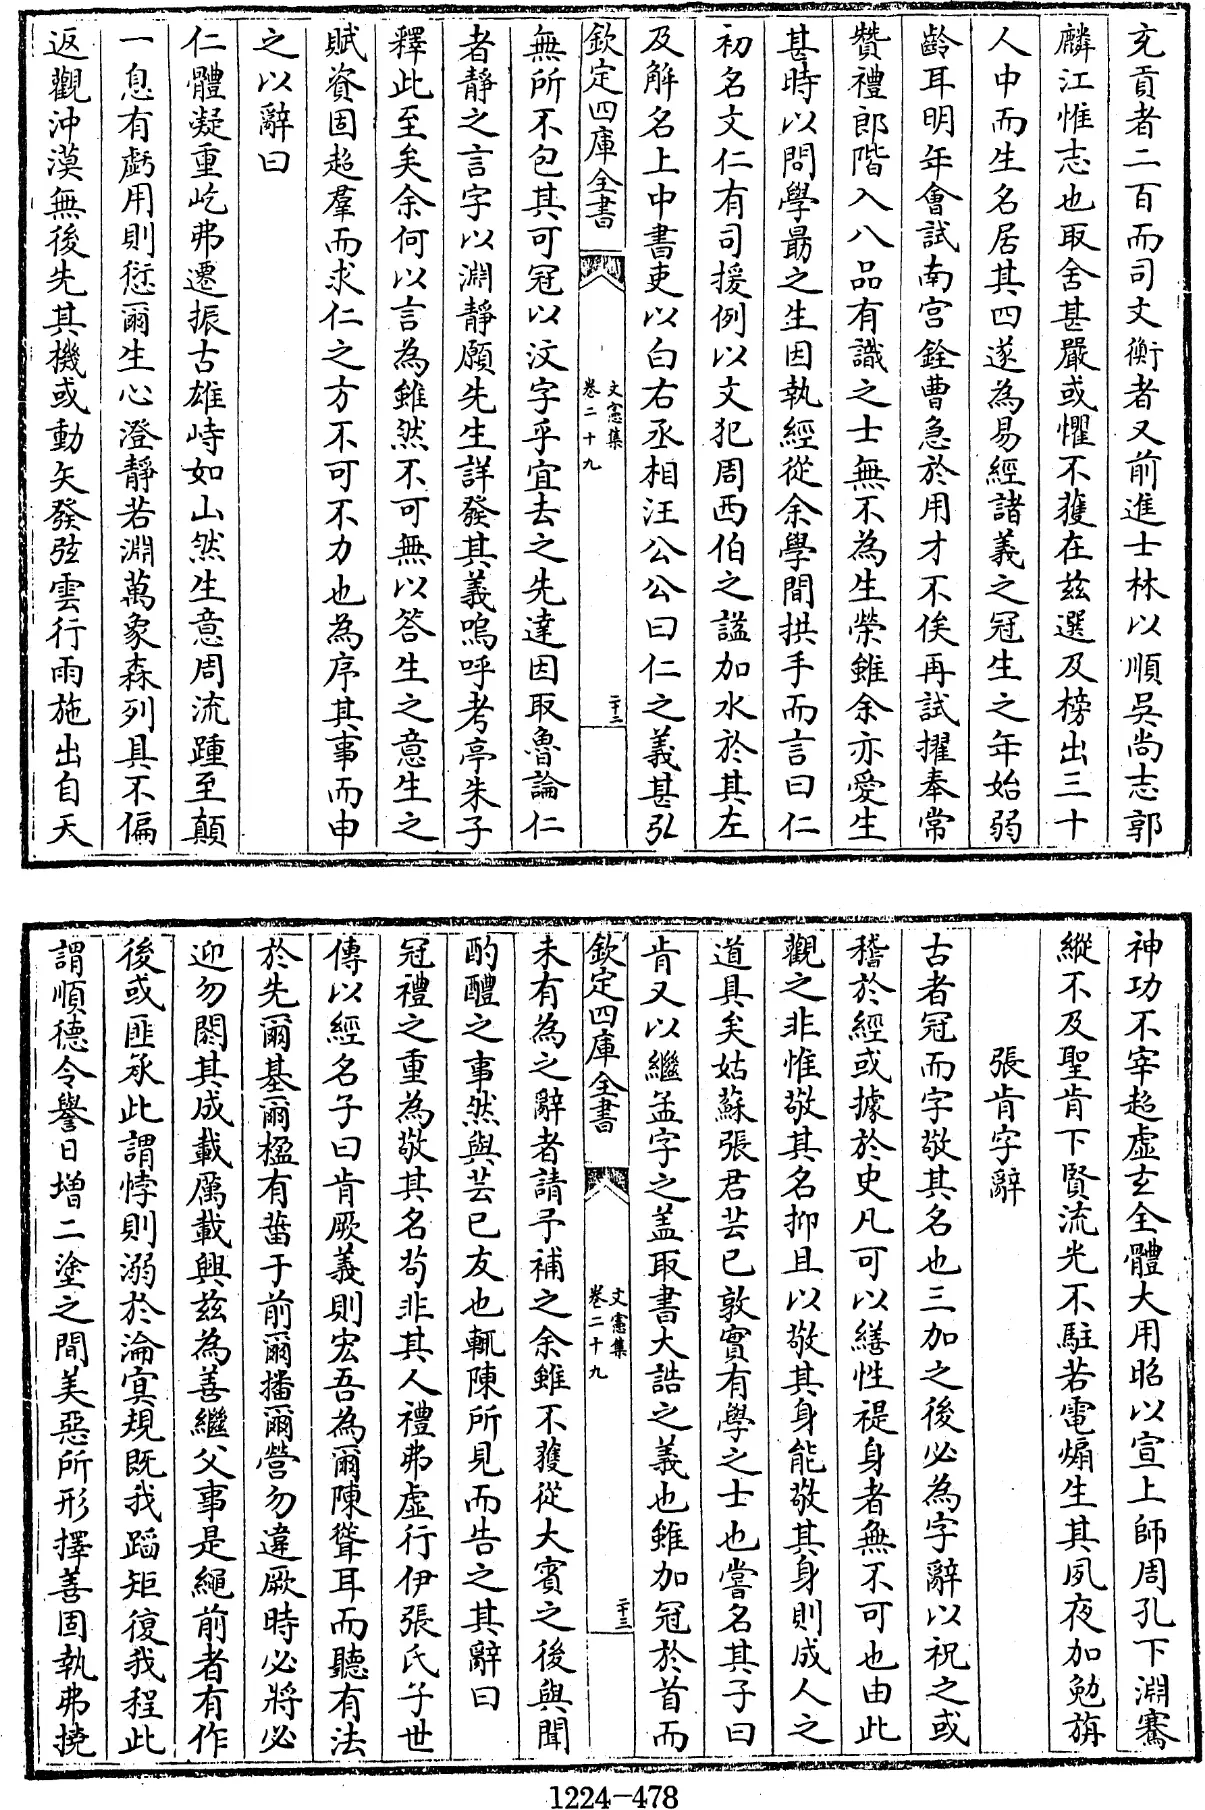 充貢者二百而司文衡者又前進士林以順吳尚志郭
麟江惟志也取舍甚嚴或懼不獲在兹選及榜出三十
人中而生名居其四遂為易經諸義之冠生之年始弱
齡耳明年會試南宫銓曹急於用才不俟再試擢奉常
贊禮郎階入八品有識之士無不為生榮雖余亦愛生
甚時以問學勗之生因執經從余學間拱手而言曰仁
初名文仁有司援例以文犯周西伯之諡加水於其左
及解名上中書吏以白右丞相汪公公曰仁之義甚弘
欽定四庫全書
文憲集
卷二十九
二十二
無所不包其可冠以汶字乎宜去之先達因取魯論仁
者靜之言字以淵靜願先生詳發其義嗚呼考亭朱子
釋此至矣余何以言為雖然不可無以答生之意生之
賦資固超羣而求仁之方不可不力也為序其事而申
之以辭曰
仁體凝重屹弗遷振古雄峙如山然生意周流踵至顛
一息有虧用則愆爾生心澄靜若淵萬象森列具不偏
返觀沖漠無後先其機或動矢發弦雲行雨施出自天
神功不宰超虚玄全體大用昭以宣上師周孔下淵騫
縱不及聖肯下賢流光不駐若電煽生其夙夜加勉旃
張肯字辭
古者冠而字敬其名也三加之後必為字辭以祝之或
稽於經或據於史凡可以繕性禔身者無不可也由此
觀之非惟敬其名抑且以敬其身能敬其身則成人之
道具矣姑蘇張君芸已敦實有學之士也嘗名其子曰
肯又以繼孟字之盖取書大誥之義也雖加冠於首而
欽定四庫全書
文憲集
卷二十九
二十三
未有為之辭者請予補之余雖不獲從大賓之後與聞
酌醴之事然與芸已友也輒陳所見而告之其辭曰
冠禮之重為敬其名苟非其人禮弗虚行伊張氏子世
傳以經名子曰肯厥義則宏吾為爾陳聳耳而聽有法
於先爾基爾楹有菑于前爾播爾營勿違厥時必將必
迎勿閼其成載厲載興兹為善繼父事是繩前者有作
後或匪承此謂悖則溺於淪冥規既我蹈矩復我程此
謂順德令譽日增二塗之間美惡所形擇善固執弗撓
1224-478